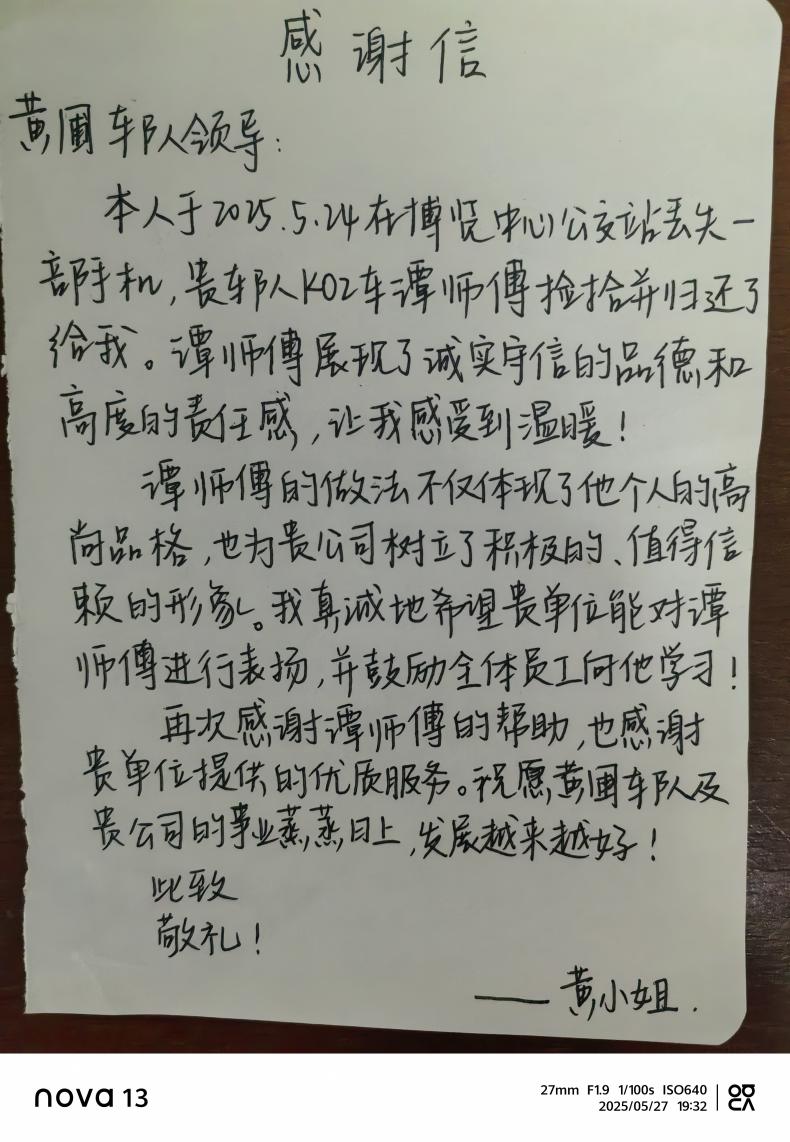 感谢信
黄圃车队领导：
本人于2025.5.24在博览中心公交站丢失一
部手机，贵车队K02车谭师傅捡拾并归还了
给我。谭师傅展现了诚实守信的品德和
高度的责任感，让我感受到温暖！
谭师傅的做法不仅体现了他个人的高
尚品格，也为贵公司树立了积极的、值得信
赖的形象。我真诚地希望贵单位能对谭
师傅进行表扬，并鼓励全体员工向他学习！
再次感谢谭师傅的帮助，也感谢
贵单位提供的优质服务。祝愿黄圃车队及
贵公司的事业蒸蒸日上，发展越来越好！
此致
敬礼！
——黄小姐.
nova 13
27mm F1.9 1/100s ISO640
2025/05/27 19:32